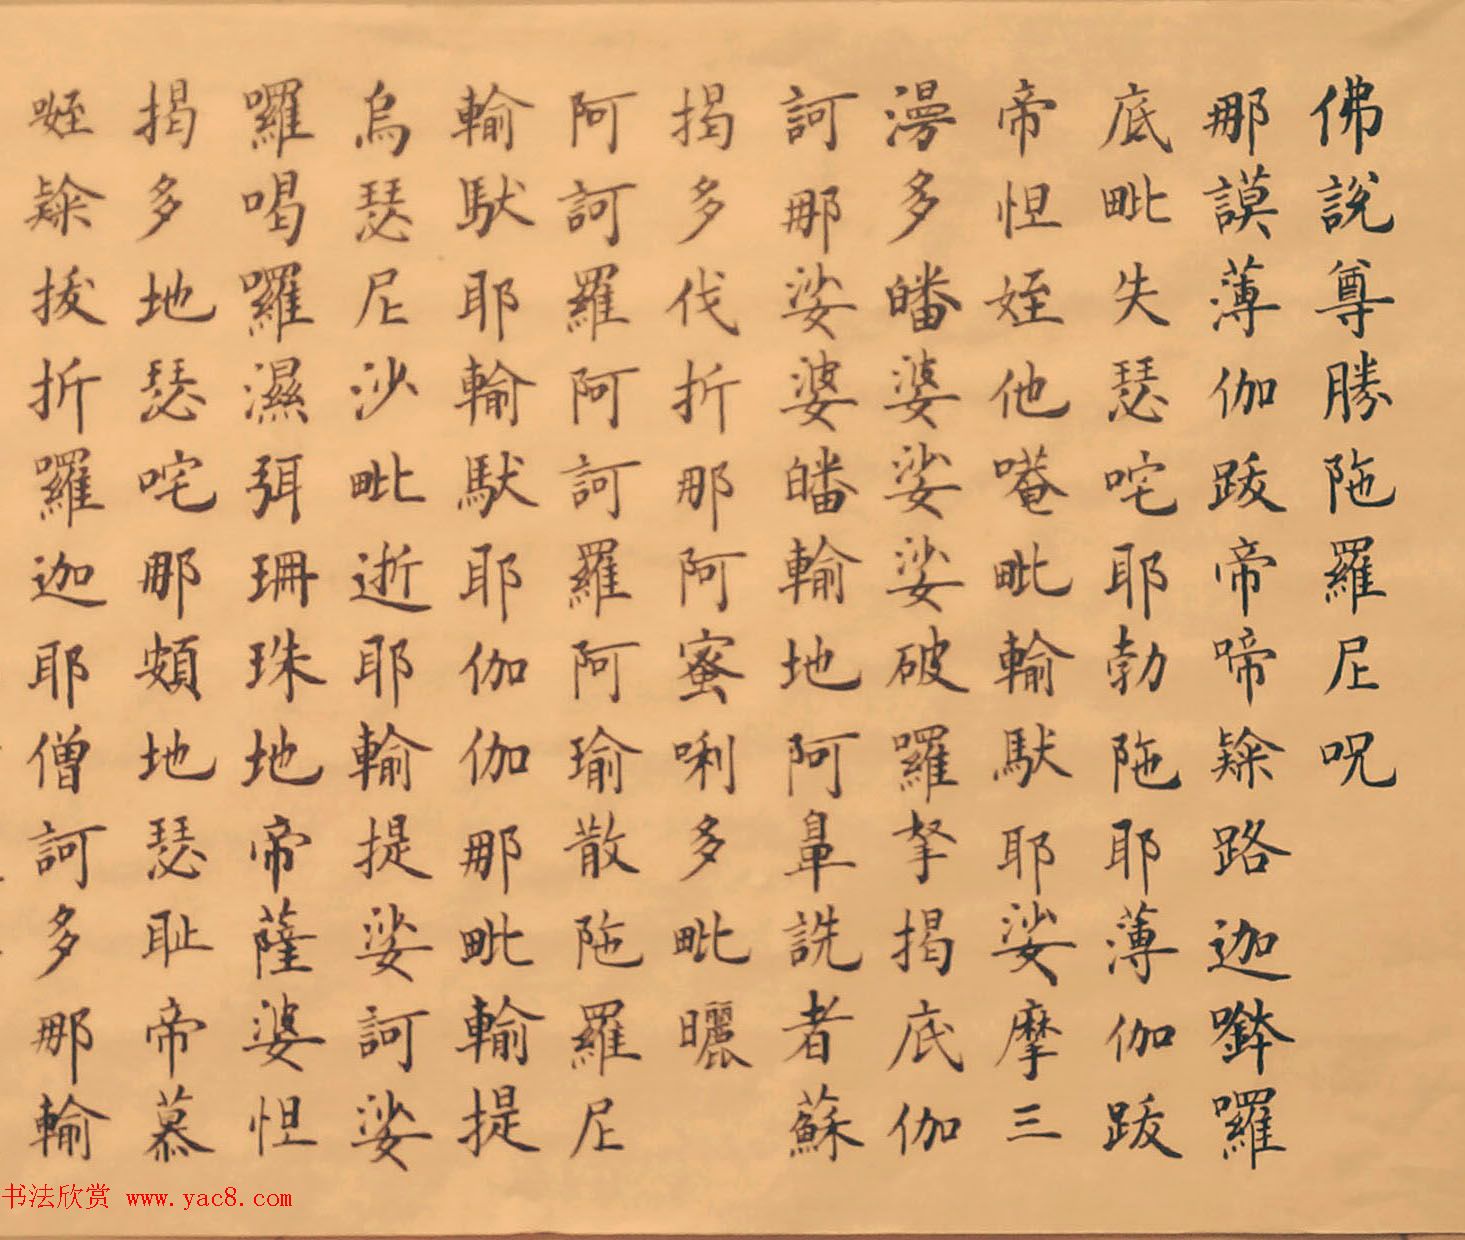 佛說尊勝陁羅尼呪
那謨薄伽跋帝啼隸路迦㘑囉
底毗失瑟咤耶勃陁耶薄伽跋
帝怛姪他唵毗輸馱耶娑摩三
漫多皤婆娑娑破羅拏揭底伽
訶那娑婆皤輸地阿鼻詵者蘇
揭多伐折那阿蜜唎多毗曬
阿訶羅阿訶羅阿瑜散陁羅尼
輸馱耶輸馱耶伽伽那毗輸提
烏瑟尼沙毗逝耶輸提娑訶娑
囉喝囉濕弭珊珠地帝薩婆怛
揭多地瑟咤那頞地瑟耻帝慕
㗌隸拔折囉迦耶僧訶多那輸
书法欣赏 www.yac8.com